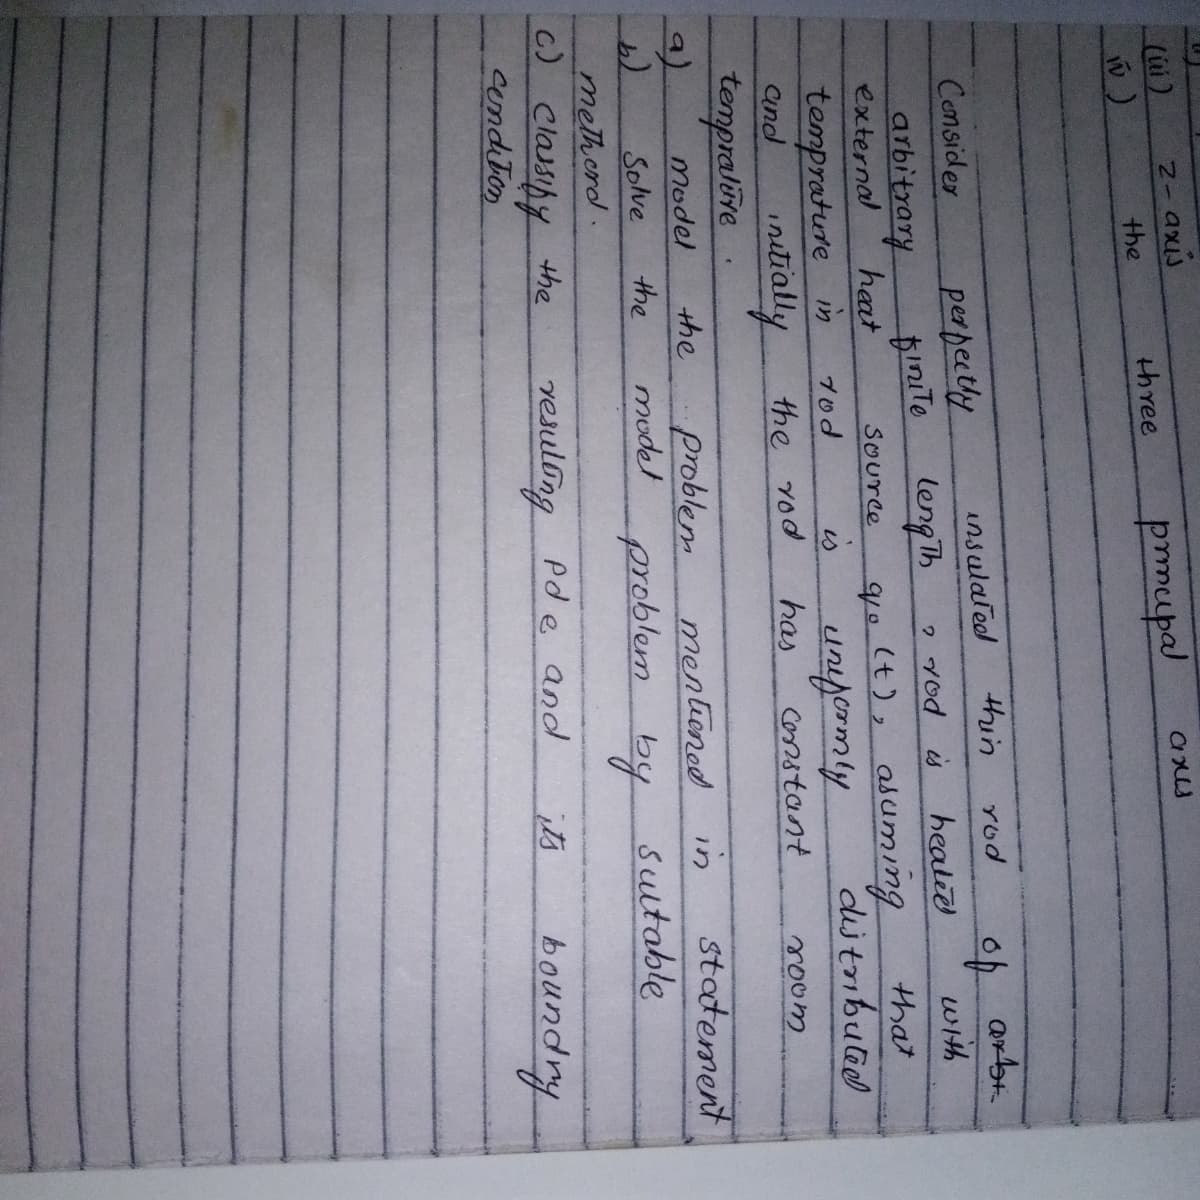 (iii) z-axis
iv) the three principal axis
Consider perfectly insulated thin rod of
arbitrary finite length, rod is heated with
external heat source q0(t), asuming that
temprature in rod is uniformly distributed
and initially the rod has constant room
temprature.
a) model the problem mentioned in statement
b) Solve the model problem by suitable
methord.
c) classify the resulting pde and its boundry
condition